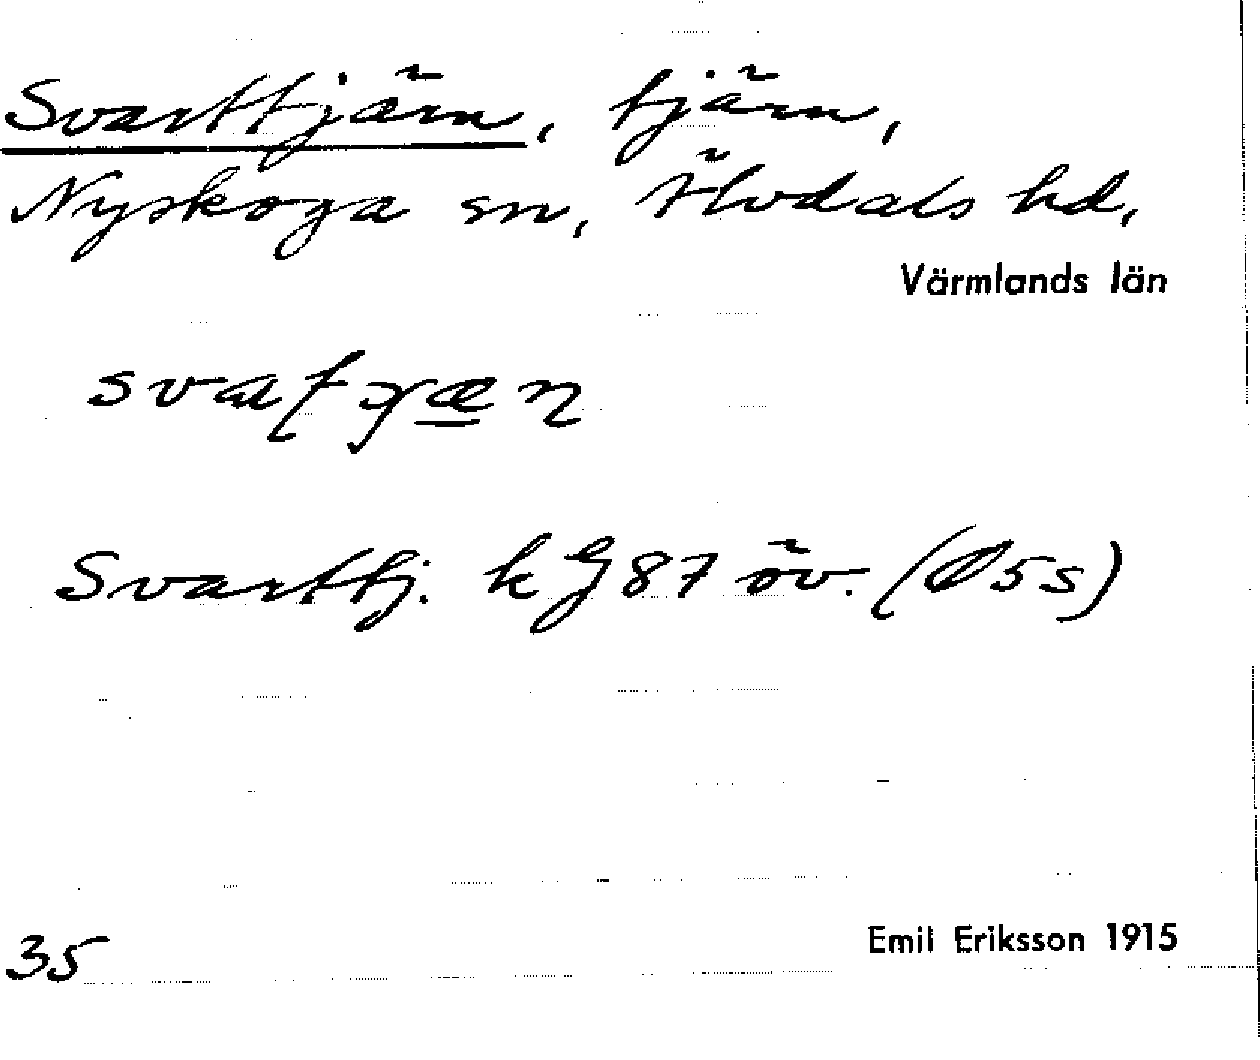 Svarttjärn, tjärn,
Nyskoga sn, Älvdals hd,
Värmlands län
Svarttj. k G 87 öv. (Ø5s)
35
Emil Eriksson 1915